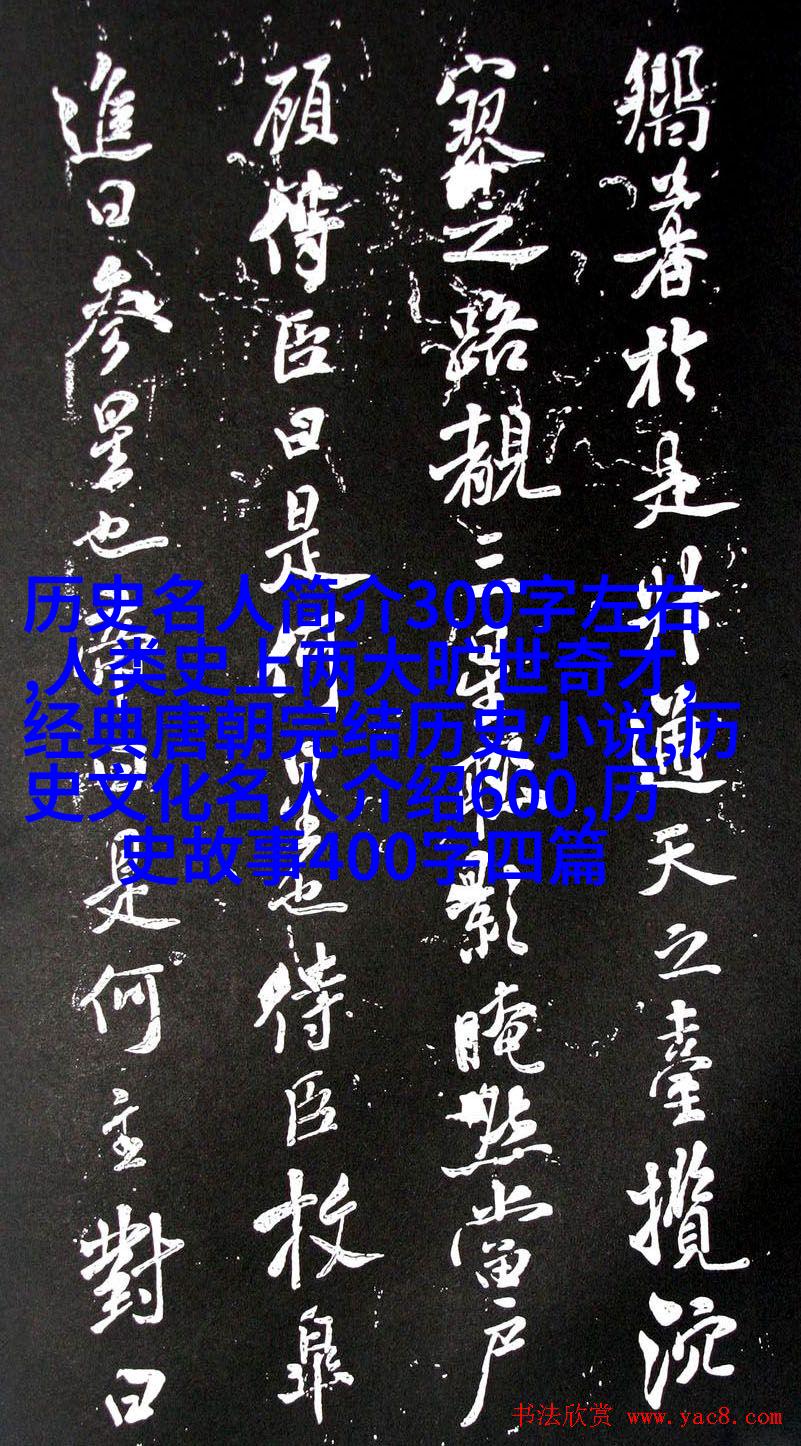 於是升通天之臺攬沉
寥之路覩三星影晻然當戶
顧侍臣曰是何星也侍臣枚皋
進曰參星也帝曰是何主對曰
历史名人简介300字左右
,人类史上两大旷世奇才,
经典唐朝完结历史小说,历
史文化名人介绍600,历
史故事400字四篇
书法欣赏 www.yac8.com